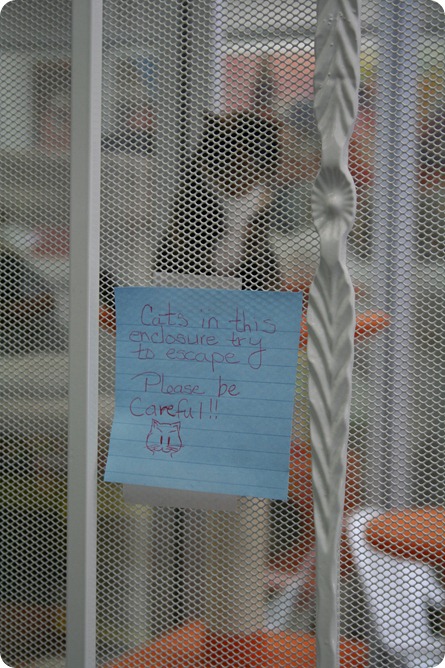 Cats in this
enclosure try
to escape
Please be
Careful!!